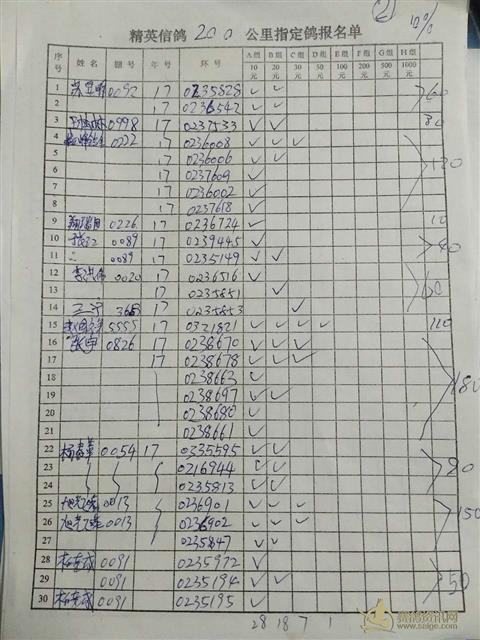 ② 10%
精英信鸽 200 公里指定鸽报名单
序号 姓名 棚号 年号 环号 A组10元 B组20元 C组30元 D组50元 E组100元 F组200元 G组500元 H组1000元
1 0092 17 0235828 ✓ ✓
2 17 0236542 ✓ ✓ 60
3 0998 17 0237533 ✓ ✓ 30
4 0222 17 0236008 ✓ ✓ ✓
5 17 0236006 ✓ ✓
6 17 0237609 ✓ 120
7 17 0236002 ✓
8 17 0237618 ✓
9 0226 17 0236724 ✓ 10
10 0089 17 0239445 ✓
11 0089 17 0235149 ✓ ✓ 40
12 0020 17 0236516 ✓
13 17 0235851 ✓ 60
14 17 0235853 ✓
15 5555 17 0321821 ✓ ✓ ✓ ✓ 110
16 0826 17 0238670 ✓ ✓ ✓
17 17 0238678 ✓ ✓ ✓
18 0238663 ✓
19 0238697 ✓ ✓ 180
20 0238680 ✓
21 0238661 ✓
22 0054 17 0335595 ✓ ✓
23 0216944 ✓ ✓ 90
24 0235813 ✓ ✓
25 0013 0236901 ✓ ✓ ✓
26 0013 0236902 ✓ ✓ ✓ 150
27 0235847 ✓ ✓
28 0091 0235972 ✓
29 0091 0235194 ✓ ✓ 50
30 0091 0235195 ✓
28 18 7 1
赛鸽资讯网
www.saige.com